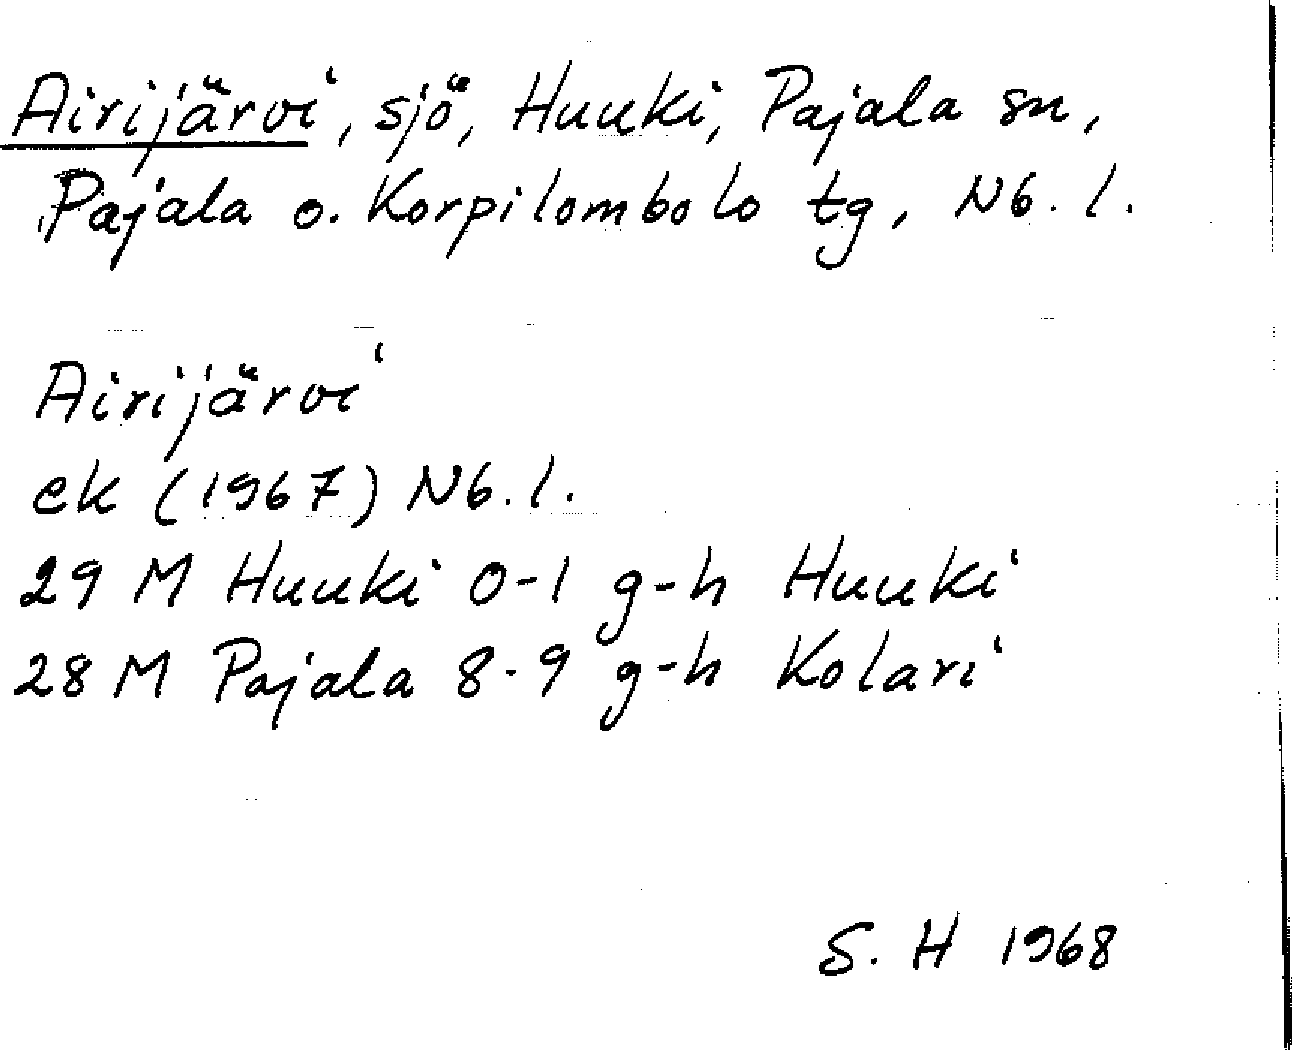 Airijärvi, sjö, Huuki, Pajala sn,
Pajala o. Korpilombolo tg, Nb. l.
Airijärvi
ek (1967) Nb. l.
29 M Huuki 0-1 g-h Huuki
28 M Pajala 8-9 g-h Kolari
S. H 1968